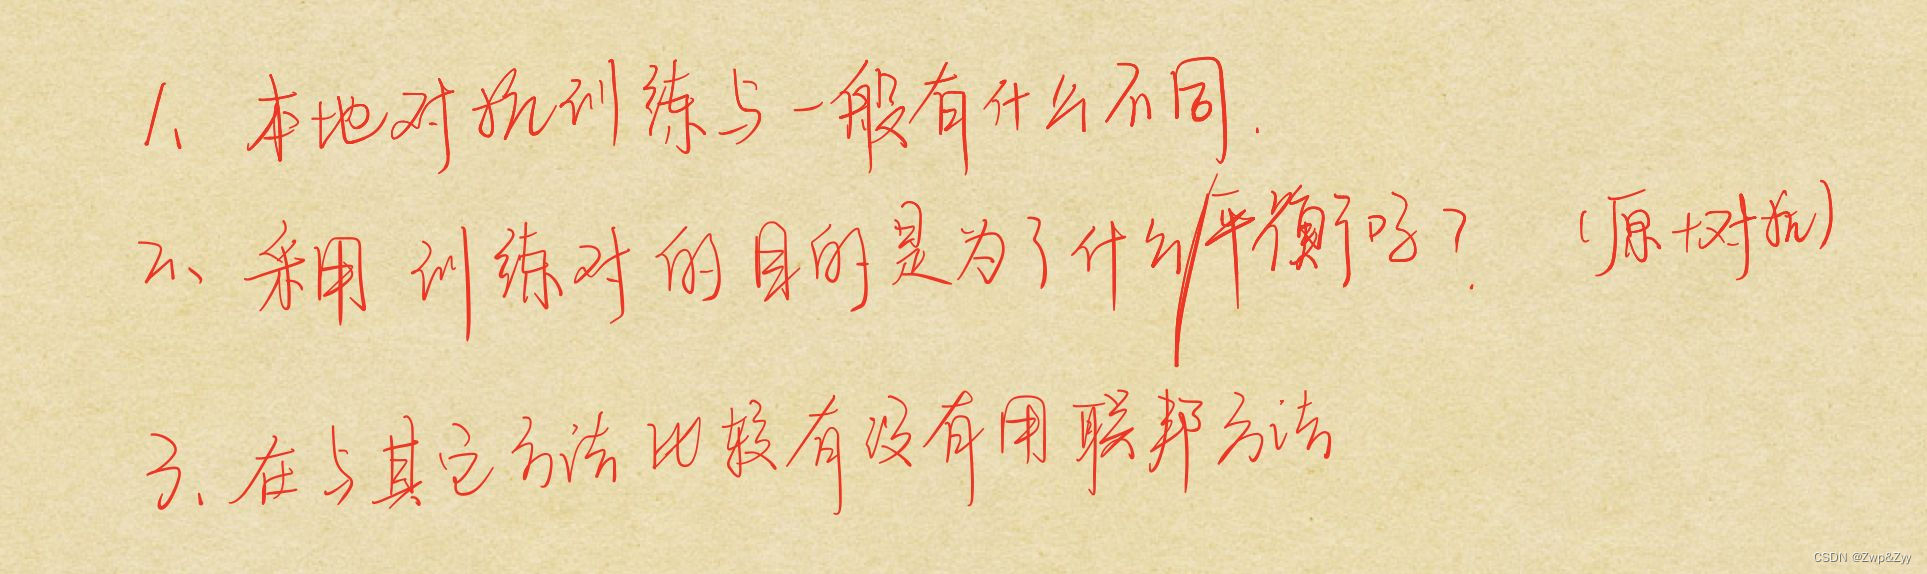 1、本地对抗训练与一般有什么不同.
2、采用训练对的目的是为了什么/平衡了吗? (原+对抗)
3、在与其它方法比较有没有用联邦方法
CSDN @Zwp&Zyy